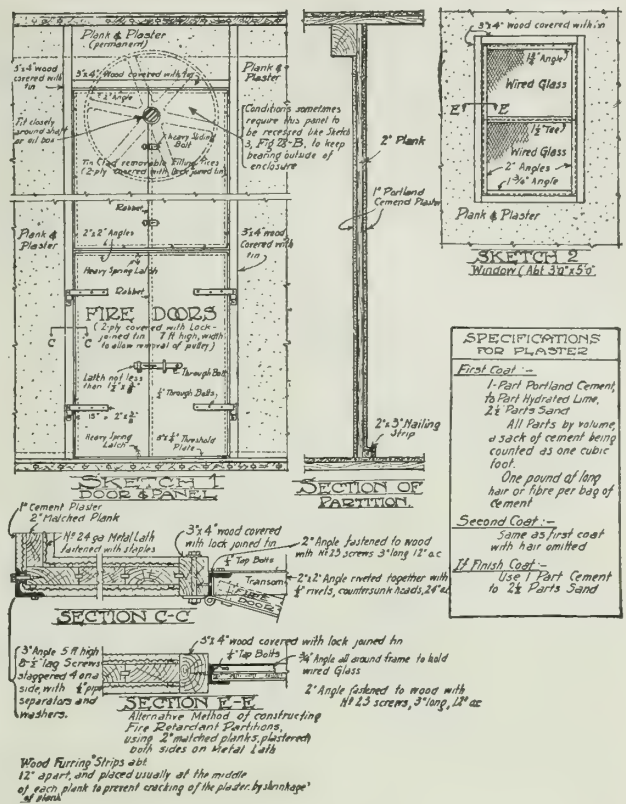 Plank & Plaster
(permanent)
3"x4" wood
covered with
tin
3"x4" Wood covered with tin
Plank &
Plaster
Angle
Fit closely
around shaft
or oil box
Heavy Sliding
Bolt
Conditions sometimes
require this panel to
be recessed like Sketch
3, Fig 28-B, to keep
bearing outside of
enclosure
Tin Clad removable Filling Pieces
(2-ply covered with Lock joined tin)
Rabbet
Plank &
Plaster
2"x2" Angles
3"x4" wood
Covered with
tin
Heavy Spring Latch
Rabbet
FIRE DOORS
(2-ply covered with Lock-
joined tin 7 ft high, width
to allow removal of pulley)
C C
Latch not less
than 1½"x⅜"
Through Bolt
Through Bolts
15" 2"x⅜"
Heavy Spring
Latch
Threshold
Plate
SKETCH 1
DOOR & PANEL
2" Plank
1" Portland
Cement Plaster
2"x3" Nailing
Strip
SECTION OF
PARTITION.
3"x4" wood covered with tin
Angle
Wired Glass
E E
1½" Tee
Wired Glass
2" Angles
1¾" Angle
Plank & Plaster
SKETCH 2
Window (Abt 3'0"x5'0"
SPECIFICATIONS
FOR PLASTER
First Coat:-
1-Part Portland Cement,
to Part Hydrated Lime,
2½ Parts Sand
All Parts by volume,
a sack of cement being
counted as one cubic
foot.
One pound of long
hair or fibre per bag of
cement
Second Coat:-
Same as first coat
with hair omitted
If Finish Coat:-
Use 1 Part Cement
to 2½ Parts Sand
1" Cement Plaster
2" Matched Plank
No 24 ga Metal Lath
fastened with staples
3"x4" wood covered
with lock joined tin
Tap Bolts
2" Angle fastened to wood
with No 23 screws 3" long 12" o.c
Transom
2"x2" Angle riveted together with
rivets, countersunk heads, 24" o.c
FIRE
DOOR
SECTION C-C
3"x4" wood covered with lock joined tin
3" Angle 5 ft high
8-½" lag Screws
staggered 4 on a
side, with ½" pipe
separators and
washers.
Tap Bolts
¾" Angle all around frame to hold
wired Glass
2" Angle fastened to wood with
No 23 screws, 3" long, 12" oc
SECTION E-E
Alternative Method of constructing
Fire Retardant Partitions,
using 2" matched planks, plastered
both sides on Metal Lath
Wood Furring Strips abt.
12" apart, and placed usually at the middle
of each plank to prevent cracking of the plaster by shrinkage
of plank